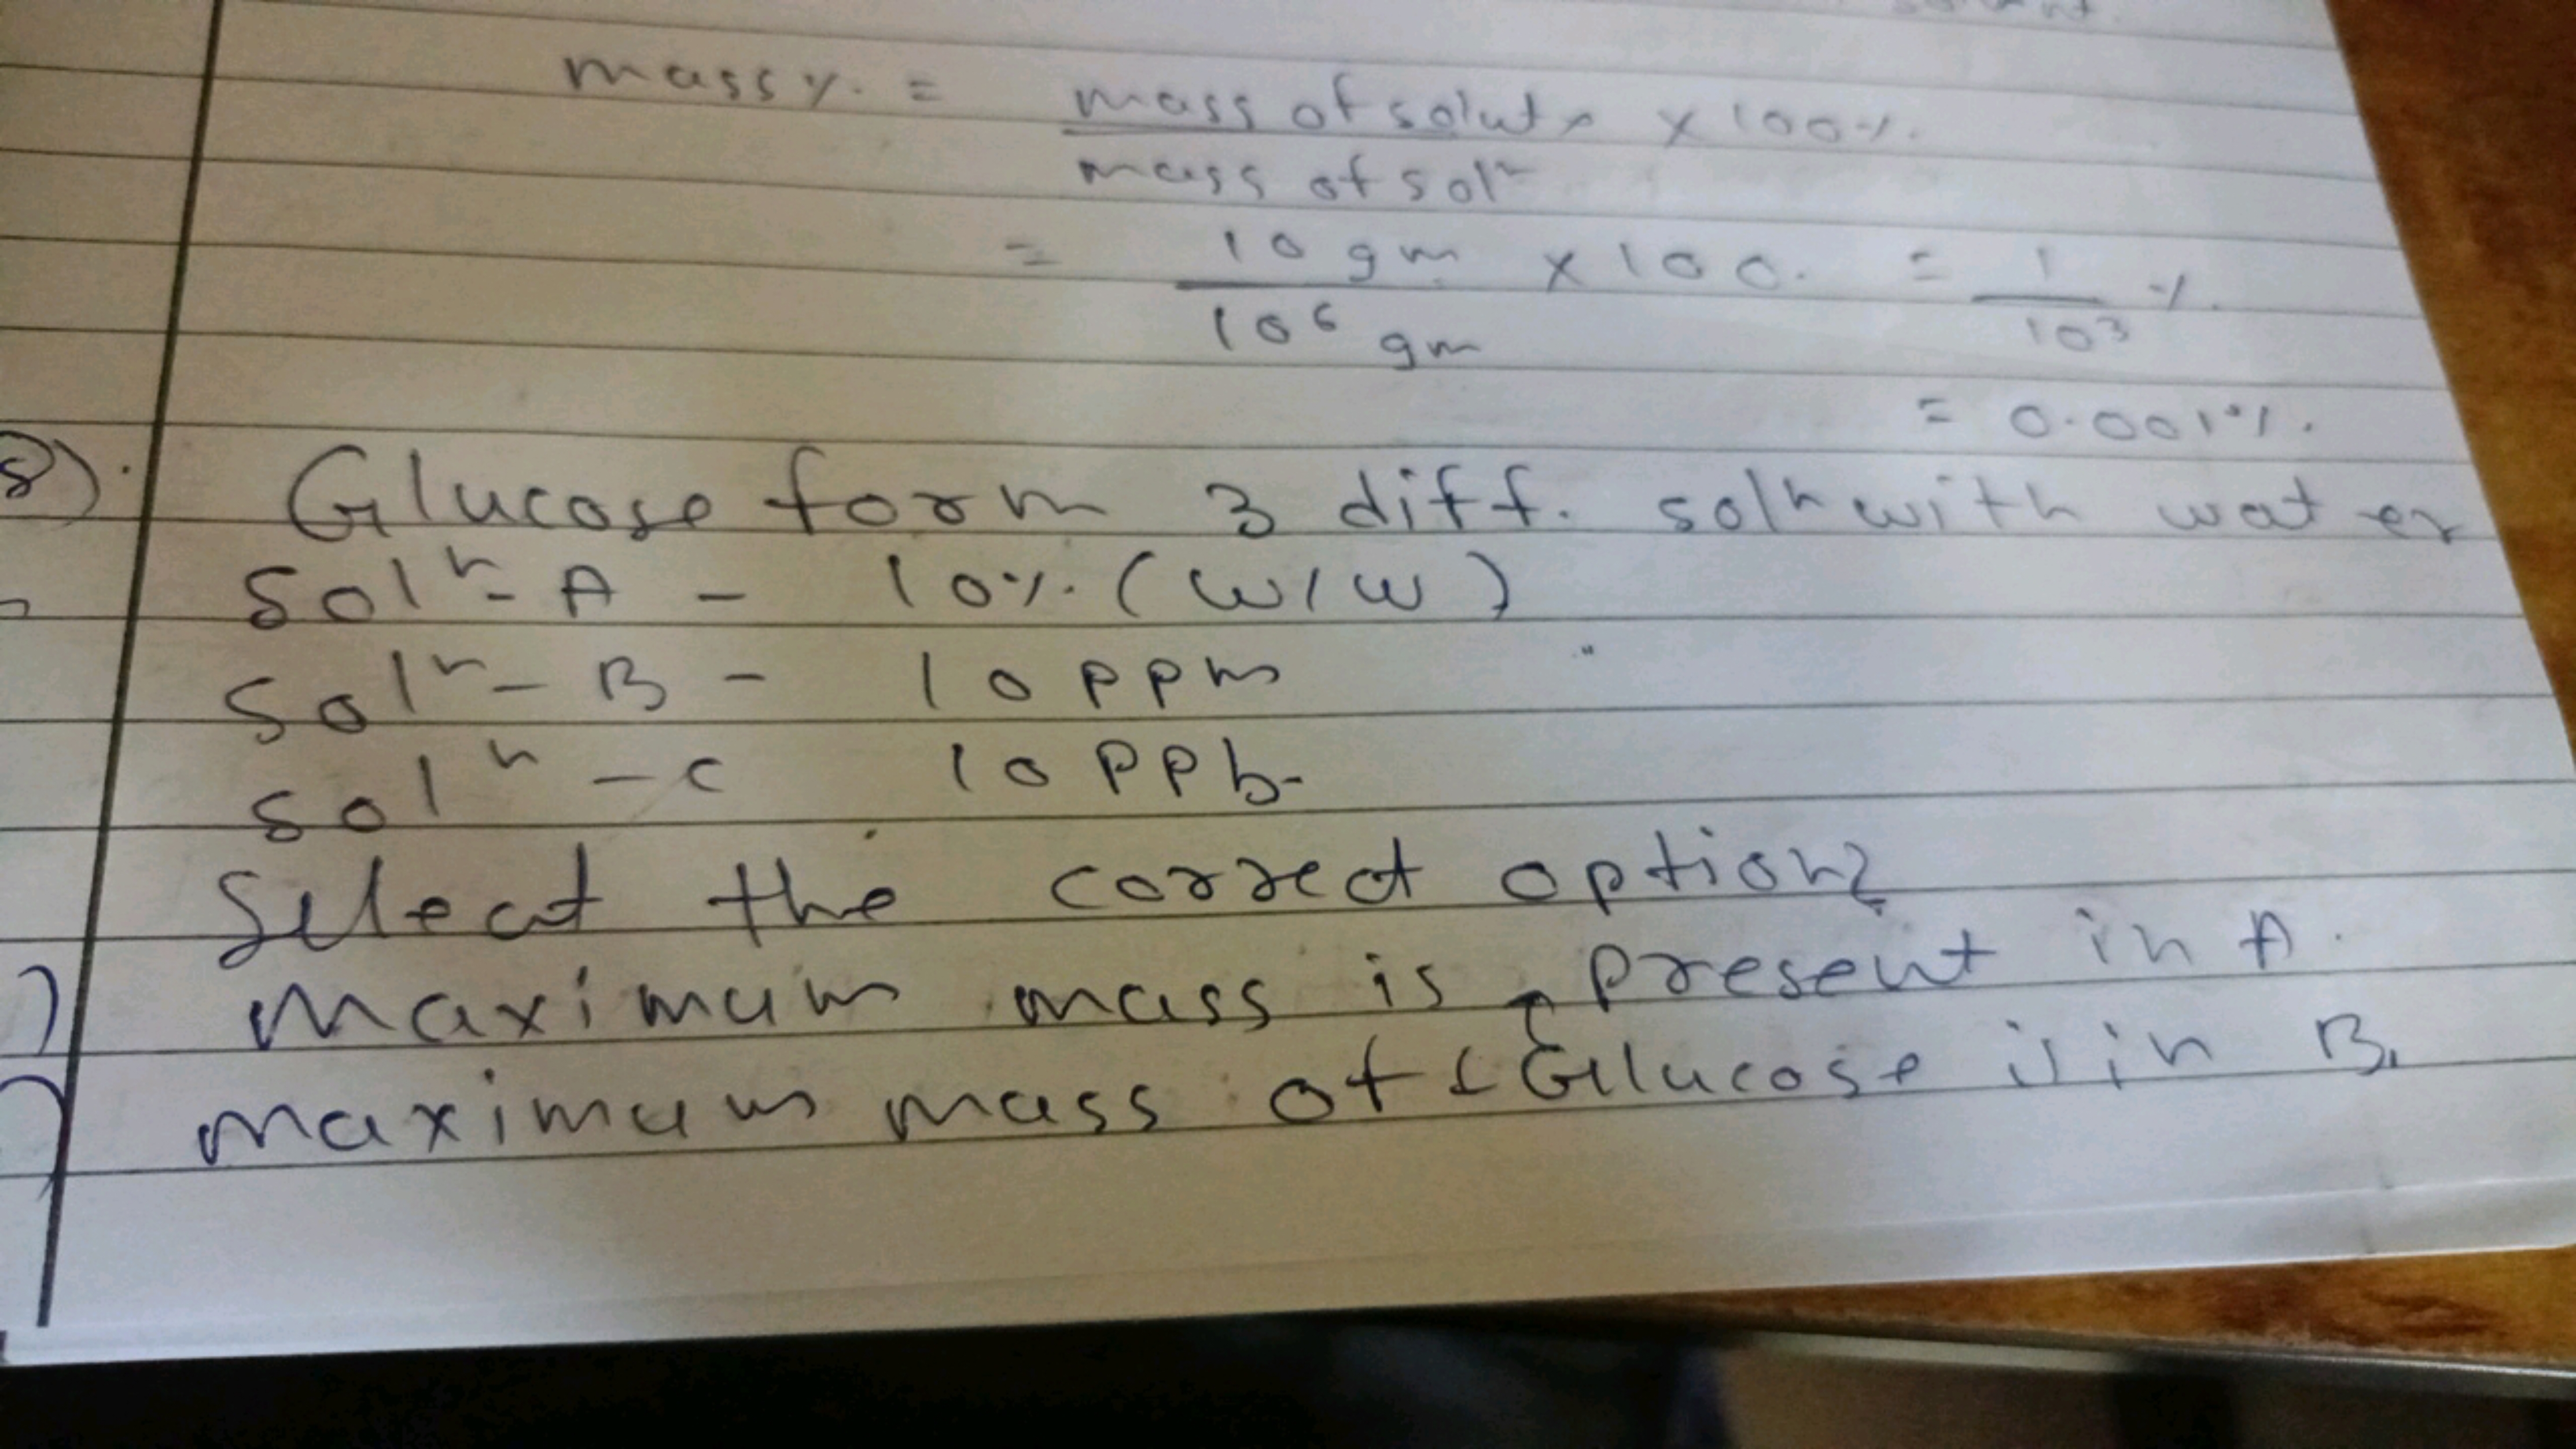 mass % = mass of solute × 100 %
mass of solⁿ
= 10 gm × 100. = 1 %
10⁶ gm 10³
= 0.001 %.
8). Glucose form 3 diff. solⁿ with water
Solⁿ - A - 10 % (W/W)
Solⁿ - B - 10 ppm
Solⁿ - C 10 ppb-
Select the correct option?
) maximum mass is present in A.
) maximum mass of Glucose is in B.